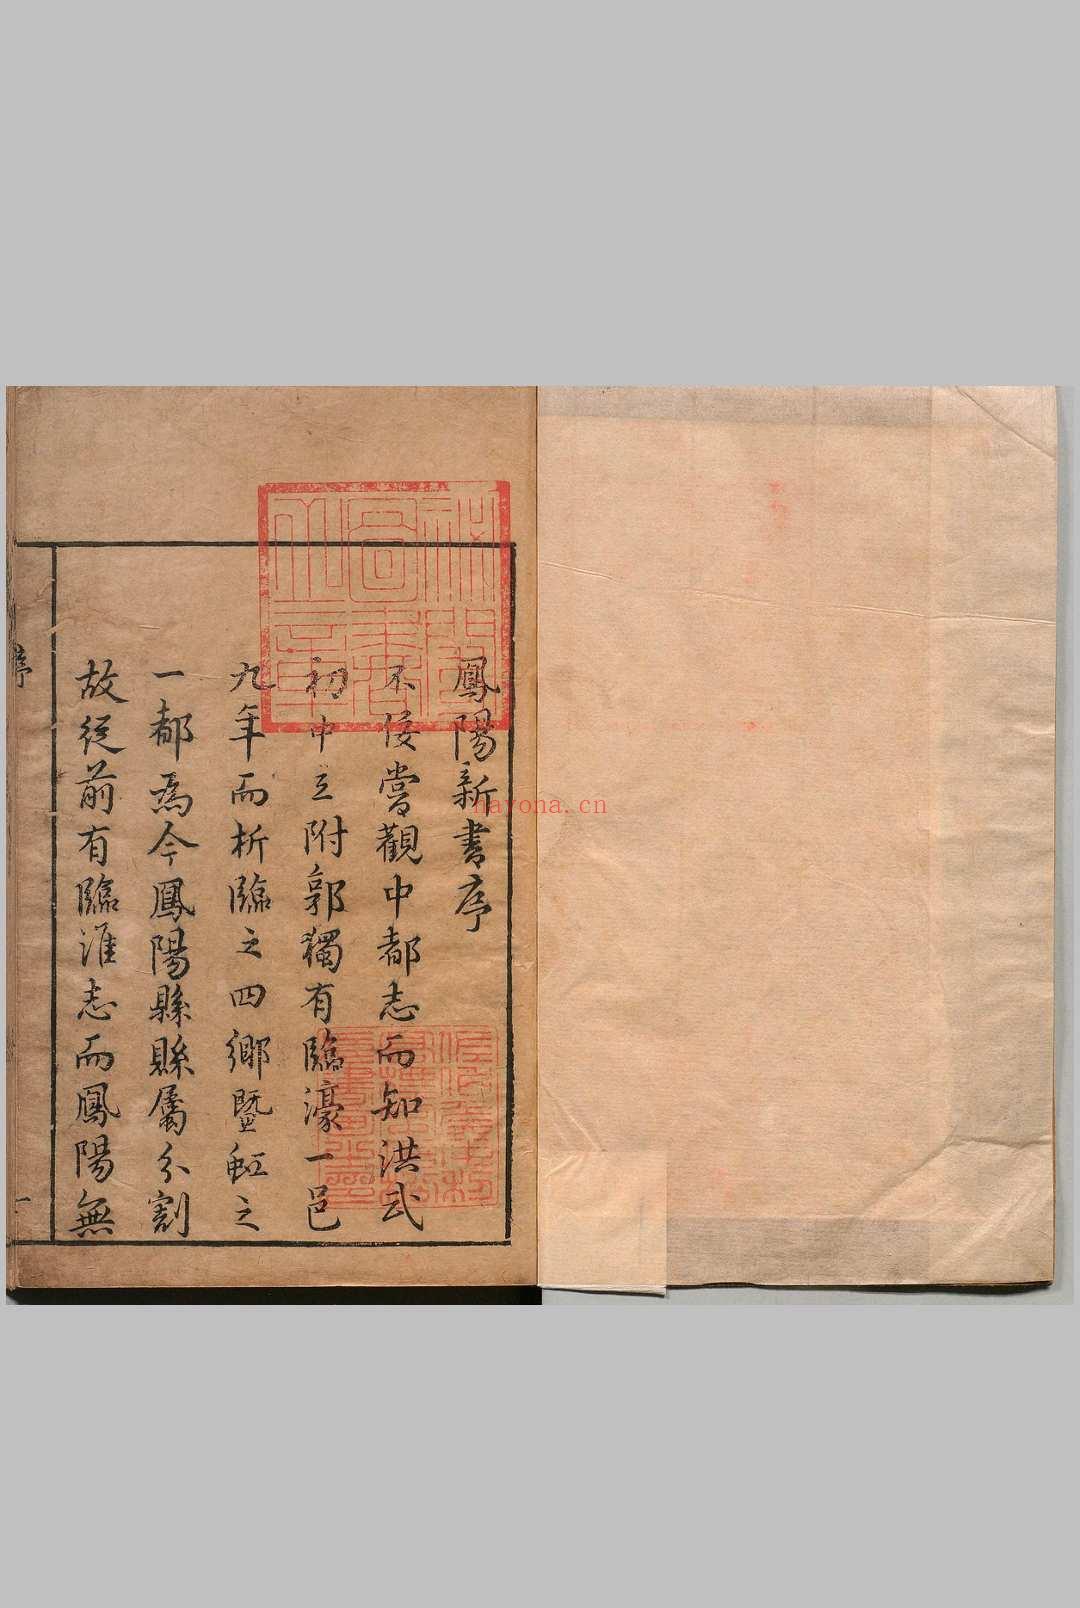 鳳陽新書序
不佞嘗觀中都志而知洪武
初中立附郭獨有臨濠一邑
九年而析臨之四鄉暨虹之
一都為今鳳陽縣縣屬分割
故從前有臨淮志而鳳陽無
序
一
nayona.cn